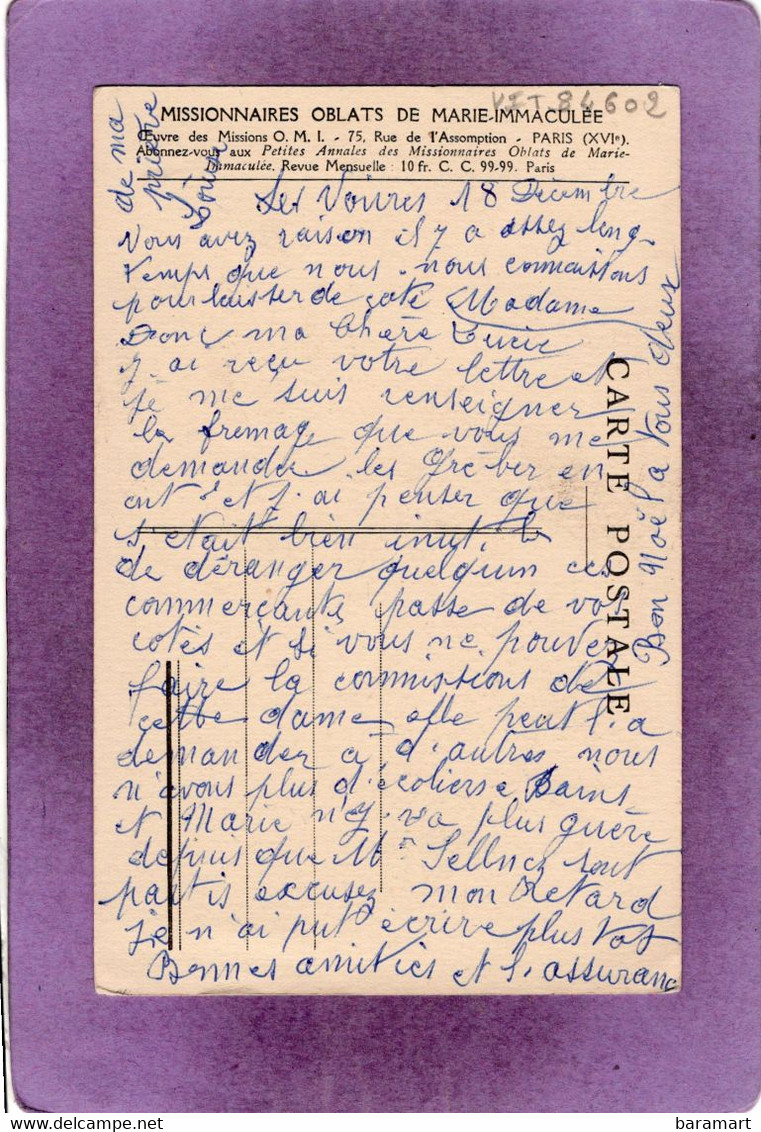 VIT 84602
MISSIONNAIRES OBLATS DE MARIE-IMMACULÉE
Œuvre des Missions O. M. I. - 75, Rue de l'Assomption - PARIS (XVIe).
Abonnez-vous aux Petites Annales des Missionnaires Oblats de Marie-
Immaculée. Revue Mensuelle : 10 fr. C. C. 99-99. Paris
Les Voivres 18 Décembre
Vous avez raison il y a assez long
temps que nous nous connaissons
pour laisser de coté Madame
Donc ma Chère Lucie
J. ai reçu votre lettre et
je me suis renseigner
le fromage que vous me
demander les Gréber en
ont et j. ai penser que
s'etait bien inutile
de déranger quelqun ces
commerçants passe de vos
cotés et si vous ne pouvez
faire la commissions de
cette dame elle peut l'a
demander a d'autres nous
n'avons plus d'écoliers a Bains
et Marie n'y va plus guère
depuis que Mr sont
partis excusez mon retard
je n'ai put écrire plus tot
Bonnes amitiés et l'assuranc
de ma
prière
Louisa
Bon Noël a vous deux
CARTE POSTALE
baramart